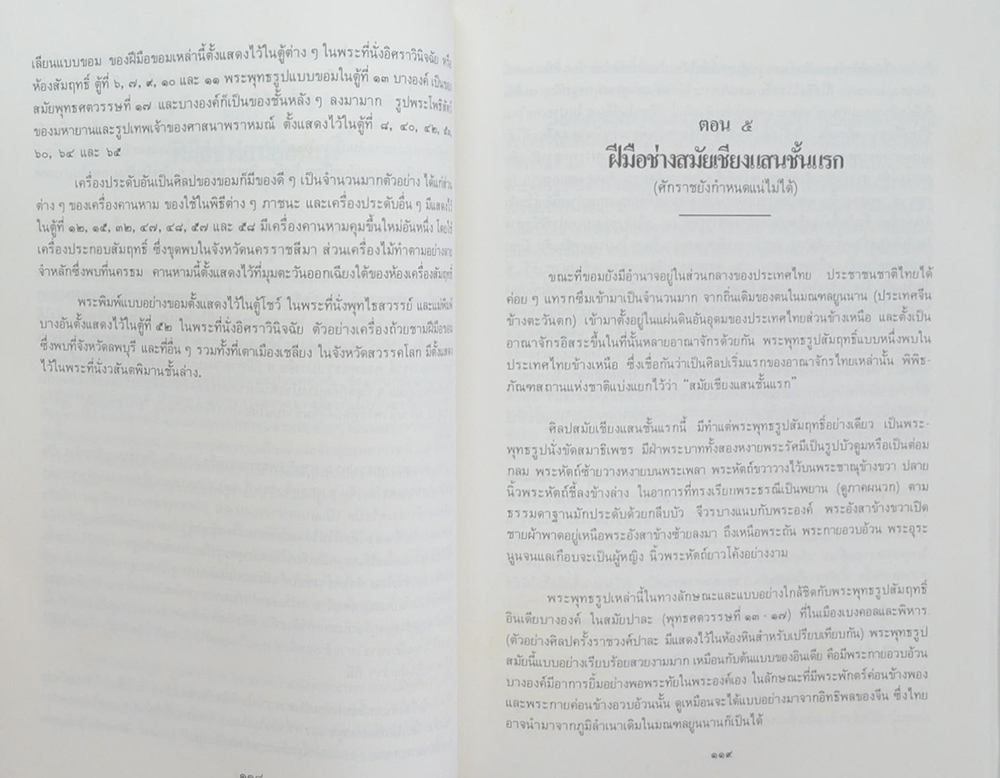 เลียนแบบขอม ของฝีมือขอมเหล่านี้ตั้งแสดงไว้ในตู้ต่าง ๆ ในพระที่นั่งอิศราวินิจฉัย หรือ
ห้องสัมฤทธิ์ ตู้ที่ ๖, ๗, ๙, ๑๐ และ ๑๑ พระพุทธรูปแบบขอมในตู้ที่ ๑๓ บางองค์ เป็นของ
สมัยพุทธศตวรรษที่ ๑๗ และบางองค์ก็เป็นของชั้นหลัง ๆ ลงมามาก รูปพระโพธิสัตว์
ของมหายานและรูปเทพเจ้าของศาสนาพราหมณ์ ตั้งแสดงไว้ในตู้ที่ ๘, ๔๐, ๔๒,
๖๐, ๖๔ และ ๖๕
เครื่องประดับอันเป็นศิลปของขอมก็มีของดี ๆ เป็นจำนวนมากตัวอย่าง ได้แก่ส่วน
ต่าง ๆ ของเครื่องคานหาม ของใช้ในพิธีต่าง ๆ ภาชนะ และเครื่องประดับอื่น ๆ มีแสดงไว้
ในตู้ที่ ๑๒, ๑๕, ๓๒, ๔๗, ๔๘, ๕๗ และ ๕๘ มีเครื่องคานหามคุมขึ้นใหม่อันหนึ่ง โดยใช้
เครื่องประกอบสัมฤทธิ์ ซึ่งขุดพบในจังหวัดนครราชสีมา ส่วนเครื่องไม้ทำตามอย่างลาย
จำหลักซึ่งพบที่นครธม คานหามนี้ตั้งแสดงไว้ที่มุมตะวันออกเฉียงใต้ของห้องเครื่องสัมฤทธิ์
พระพิมพ์แบบอย่างขอมตั้งแสดงไว้ในตู้โชว์ ในพระที่นั่งพุทไธสวรรย์ และแม่พิมพ์
บางอันตั้งแสดงไว้ในตู้ที่ ๕๒ ในพระที่นั่งอิศราวินิจฉัย ตัวอย่างเครื่องถ้วยชามฝีมือขอม
ซึ่งพบที่จังหวัดลพบุรี และที่อื่น ๆ รวมทั้งที่เตาเมืองเชลียง ในจังหวัดสวรรคโลก มีตั้งแสดง
ไว้ในพระที่นั่งวสันตพิมานชั้นล่าง.
๑๑๘
ตอน ๕
ฝีมือช่างสมัยเชียงแสนชั้นแรก
(ศักราชยังกำหนดแน่ไม่ได้)
ขณะที่ขอมยังมีอำนาจอยู่ในส่วนกลางของประเทศไทย ประชาชนชาติไทยได้
ค่อย ๆ แทรกซึมเข้ามาเป็นจำนวนมาก จากถิ่นเดิมของตนในมณฑลยูนนาน (ประเทศจีน
ข้างตะวันตก) เข้ามาตั้งอยู่ในแผ่นดินอันอุดมของประเทศไทยส่วนข้างเหนือ และตั้งเป็น
อาณาจักรอิสระขึ้นในที่นั้นหลายอาณาจักรด้วยกัน พระพุทธรูปสัมฤทธิ์แบบหนึ่งพบใน
ประเทศไทยข้างเหนือ ซึ่งเชื่อกันว่าเป็นศิลปเริ่มแรกของอาณาจักรไทยเหล่านั้น พิพิธ-
ภัณฑสถานแห่งชาติแบ่งแยกไว้ว่า “สมัยเชียงแสนชั้นแรก”
ศิลปสมัยเชียงแสนชั้นแรกนี้ มีทำแต่พระพุทธรูปสัมฤทธิ์อย่างเดียว เป็นพระ-
พุทธรูปนั่งขัดสมาธิเพชร มีฝ่าพระบาททั้งสองหงายพระรัศมีเป็นรูปบัวตูมหรือเป็นต่อม
กลม พระหัตถ์ซ้ายวางหงายบนพระเพลา พระหัตถ์ขวาวางไว้บนพระชาณุข้างขวา ปลาย
นิ้วพระหัตถ์ชี้ลงข้างล่าง ในอาการที่ทรงเรียกพระธรณีเป็นพยาน (ดูภาคผนวก) ตาม
ธรรมดาฐานมักประดับด้วยกลีบบัว จีวรบางแนบกับพระองค์ พระอังสาข้างขวาเปิด
ชายผ้าพาดอยู่เหนือพระอังสาข้างซ้ายลงมา ถึงเหนือพระถัน พระกายอวบอ้วน พระอุระ
นูนจนแลเกือบจะเป็นผู้หญิง นิ้วพระหัตถ์ยาวโค้งอย่างงาม
พระพุทธรูปเหล่านี้ในทางลักษณะและแบบอย่างใกล้ชิดกับพระพุทธรูปสัมฤทธิ์
อินเดียบางองค์ ในสมัยปาละ (พุทธศตวรรษที่ ๑๓ - ๑๗) ที่ในเมืองเบงคอลและพิหาร
(ตัวอย่างศิลปครั้งราชวงศ์ปาละ มีแสดงไว้ในห้องหินสำหรับเปรียบเทียบกัน) พระพุทธรูป
สมัยนี้แบบอย่างเรียบร้อยสวยงามมาก เหมือนกับต้นแบบของอินเดีย คือมีพระกายอวบอ้วน
บางองค์มีอาการยิ้มอย่างพอพระทัยในพระองค์เอง ในลักษณะที่มีพระพักตร์ค่อนข้างพอง
และพระกายค่อนข้างอวบอ้วนนั้น ดูเหมือนจะได้แบบอย่างมาจากอิทธิพลของจีน ซึ่งไทย
อาจนำมาจากภูมิลำเนาเดิมในมณฑลยูนนานก็เป็นได้
๑๑๙